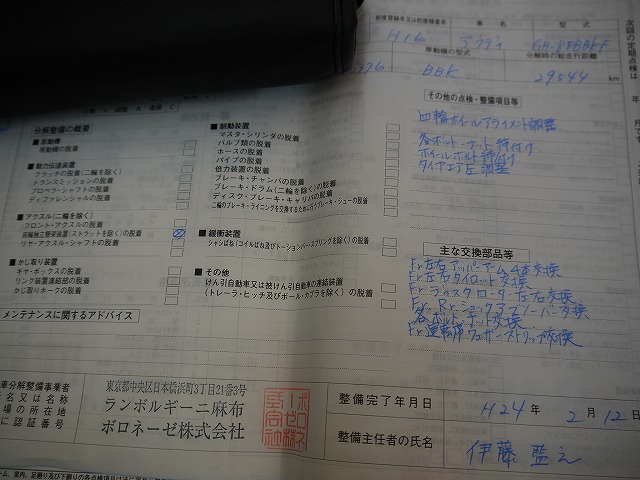 初度登録年又は初度検査年
車名
型式
H16
アウディ
GH-8EBBKF
原動機の型式
分解時の総走行距離
BBK
29544
km
次回の定期点検
分解整備の概要
■原動機
原動機の脱着
■動力伝達装置
クラッチの脱着(二輪を除く)
トランスミッションの脱着
プロペラ・シャフトの脱着
ディファレンシャルの脱着
■アクスル(二輪を除く)
フロント・アクスルの脱着
前輪独立懸架装置(ストラットを除く)の脱着
リヤ・アクスル・シャフトの脱着
■かじ取り装置
ギヤ・ボックスの脱着
リンク装置連結部の脱着
かじ取りホークの脱着
■制動装置
マスタ・シリンダの脱着
バルブ類の脱着
ホースの脱着
パイプの脱着
倍力装置の脱着
ブレーキ・チャンバの脱着
ブレーキ・ドラム(二輪を除く)の脱着
ディスク・ブレーキ・キャリパの脱着
二輪のブレーキ・ライニングを交換するために行うブレーキ・シューの脱着
■緩衝装置
シャシばね(コイルばね及びトーションバー・スプリングを除く)の脱着
■その他
けん引自動車又は被けん引自動車の連結装置
(トレーラ・ヒッチ及びボール・カプラを除く)の脱着
その他の点検・整備項目等
四輪ホイールアライメント調整
各ボルト・ナット締付け
ホイールボルト締付け
タイヤエア圧調整
主な交換部品等
Fr左右アッパーアーム4本交換
Fr左右タイロット交換
Fr ディスクローター左右交換
各ボルト・ナット交換
Fr運転席ウェザーストリップ交換
メンテナンスに関するアドバイス
車分解整備事業者
名又は名称
場の所在地
に認証番号
東京都中央区日本橋浜町3丁目21番3号
ランボルギーニ麻布
ボロネーゼ株式会社
整備完了年月日
H24年2月12日
整備主任者の氏名